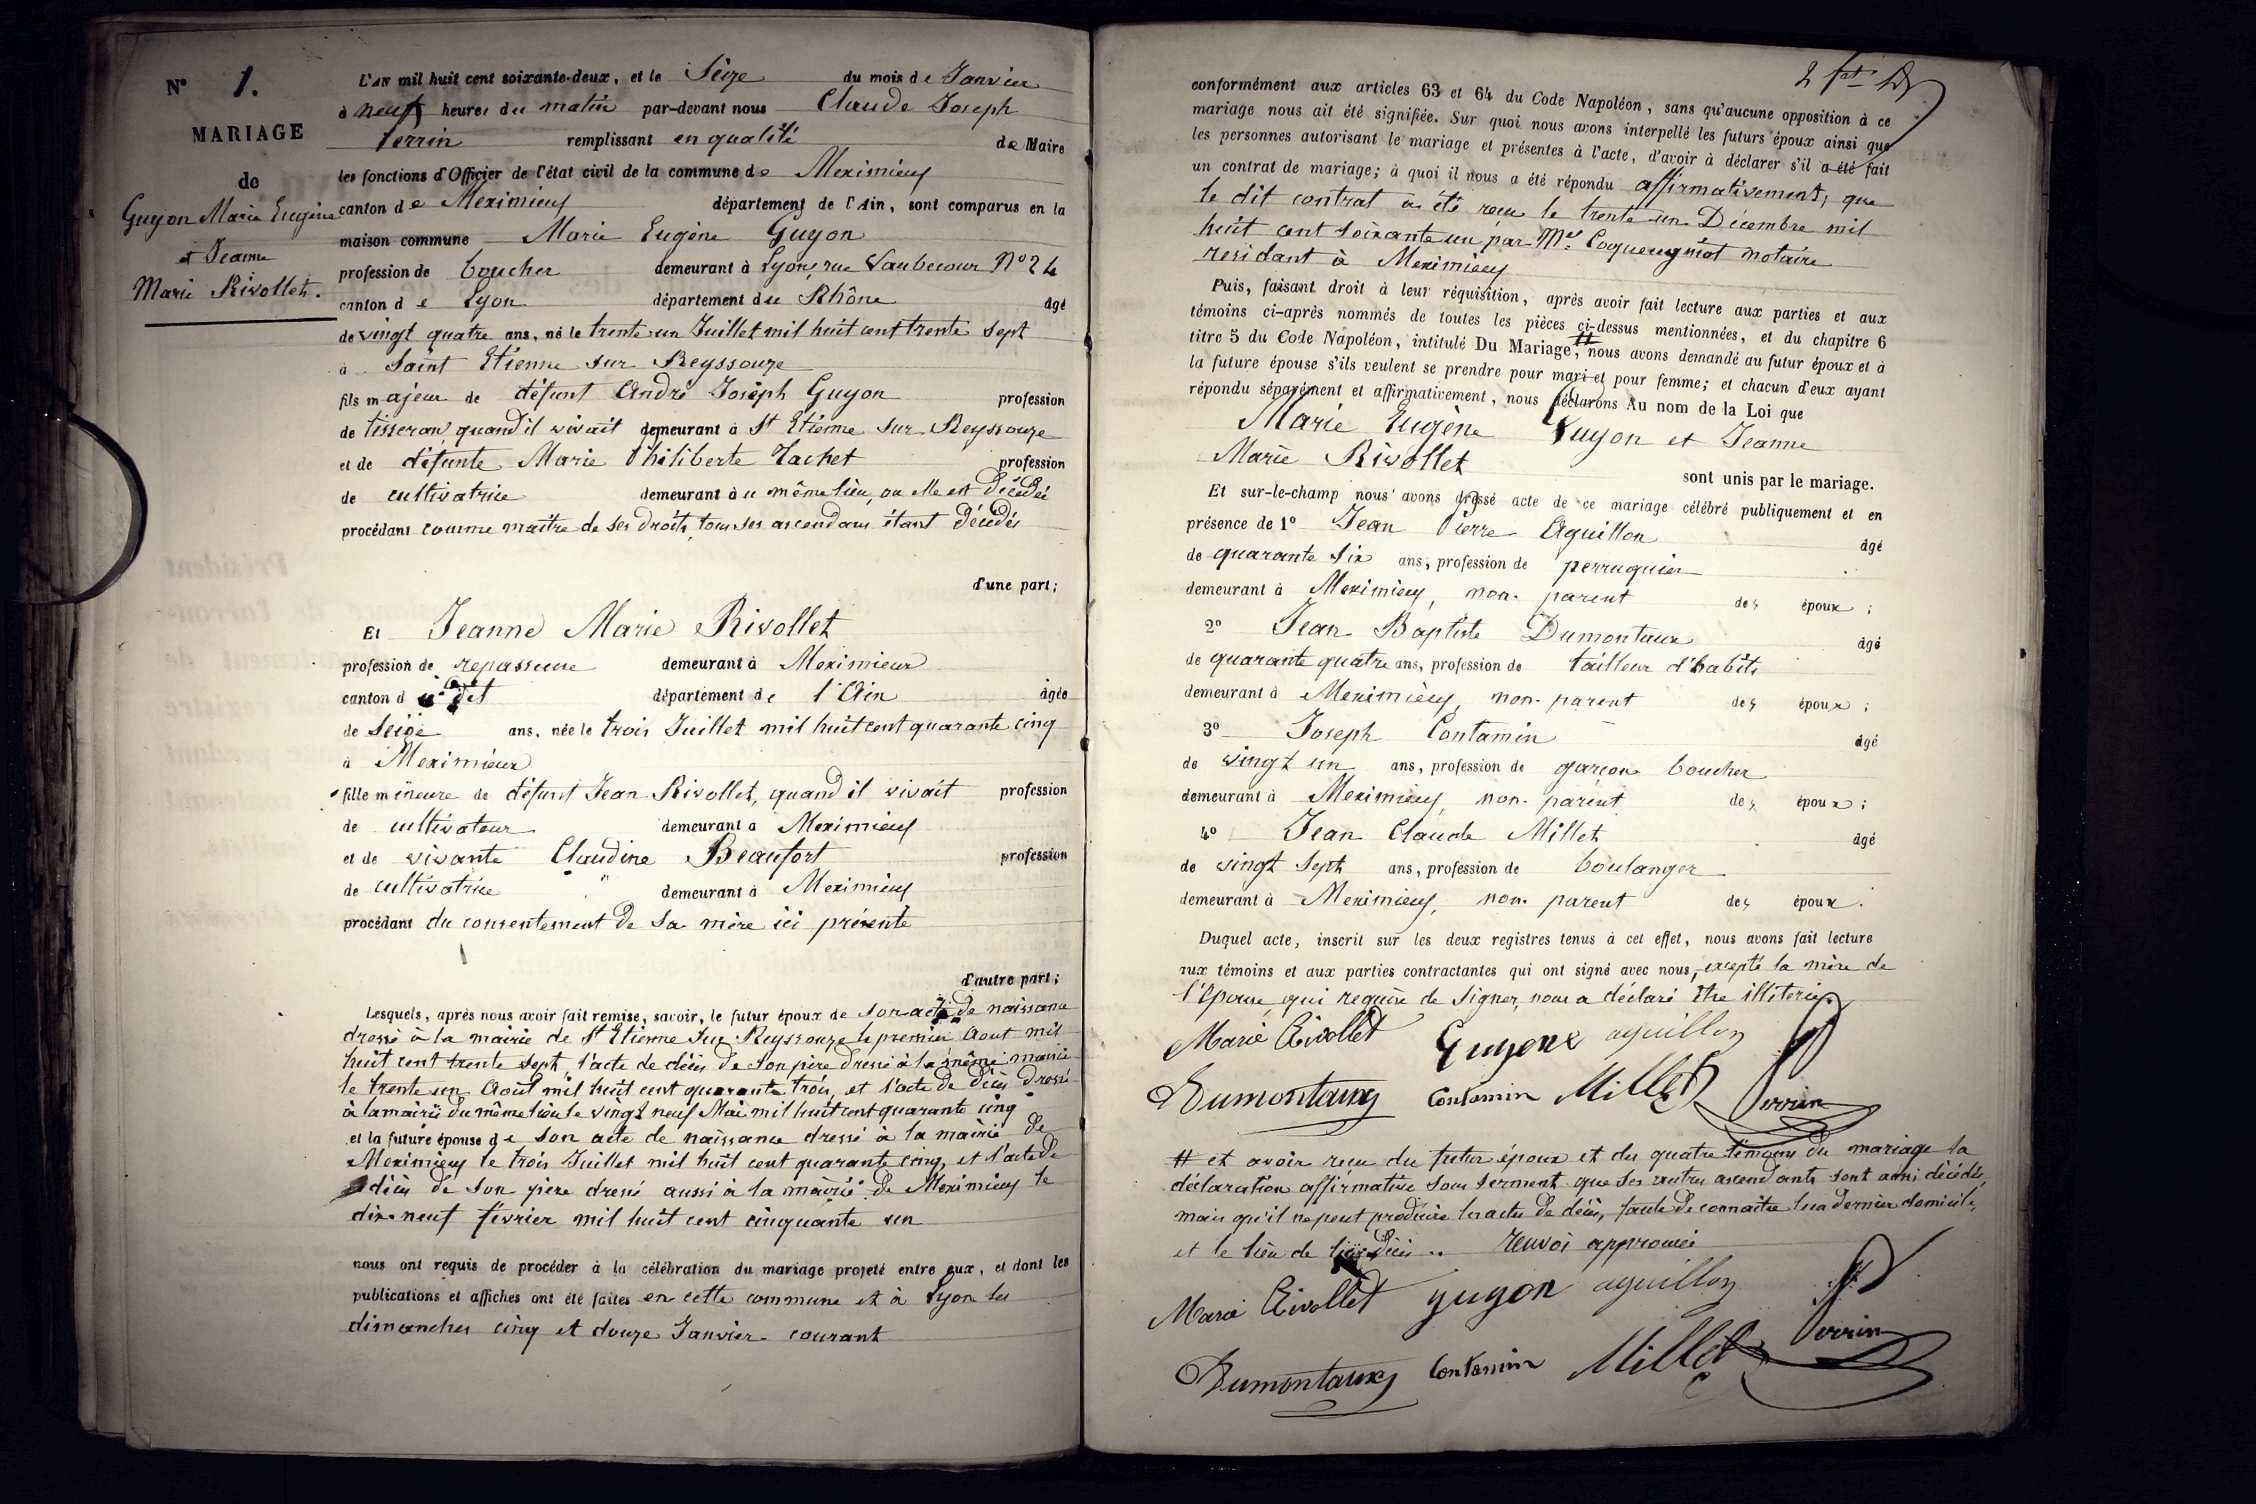 N° 1.
MARIAGE
de
Guyon Marie Eugène
et Jeanne
Marie Rivollet.
L'AN mil huit cent soixante-deux, et le Seize du mois de Janvier
à neuf heures du matin par-devant nous Claude Joseph
Perrin remplissant en qualité de Maire
les fonctions d'Officier de l'état civil de la commune de Meximieux
canton de Meximieux département de l'Ain, sont comparus en la
maison commune Marie Eugène Guyon
profession de boucher demeurant à Lyon, rue Vaubecour N° 24
canton de Lyon département du Rhône âgé
de vingt quatre ans, né le trente un Juillet mil huit cent trente sept
à Saint Etienne sur Reyssouze
fils majeur de défunt André Joseph Guyon profession
de tisseran quand il vivait demeurant à St Etienne sur Reyssouze
et de défunte Marie Philiberte Tachet profession
de cultivatrice demeurant au même lieu, ou elle est décédée
procédant comme maître de ses droits, tous ses ascendans étant décédés
d'une part;
Et Jeanne Marie Rivollet
profession de repasseuse demeurant à Meximieux
canton du dit département de l'Ain âgée
de Seize ans, née le trois Juillet mil huit cent quarante cinq
à Meximieux
fille mineure de défunt Jean Rivollet, quand il vivait profession
de cultivateur demeurant à Meximieux
et de vivante Claudine Beaufort profession
de cultivatrice demeurant à Meximieux
procédant du consentement de sa mère ici présente
d'autre part;
Lesquels, après nous avoir fait remise, savoir, le futur époux de son acte de naissance
dressé à la mairie de St Etienne sur Reyssouze le premier Aout mil
huit cent trente sept, l'acte de décès de son père dressé à la même mairie
le trente un Août mil huit cent quarante trois, et l'acte de décès dressé
à la mairie du même lieu le vingt neuf Mai mil huit cent quarante cinq
et la future épouse de son acte de naissance dressé à la mairie de
Meximieux le trois Juillet mil huit cent quarante cinq, et l'acte de
décès de son père dressé aussi à la mairie de Meximieux le
dix neuf février mil huit cent cinquante un
nous ont requis de procéder à la célébration du mariage projeté entre eux, et dont les
publications et affiches ont été faites en cette commune et à Lyon les
dimanches cinq et douze Janvier courant
2
conformément aux articles 63 et 64 du Code Napoléon, sans qu'aucune opposition à ce
mariage nous ait été signifiée. Sur quoi nous avons interpellé les futurs époux ainsi que
les personnes autorisant le mariage et présentes à l'acte, d'avoir à déclarer s'il a été fait
un contrat de mariage; à quoi il nous a été répondu affirmativement, que
le dit contrat a été reçu le trente un Décembre mil
huit cent soixante un par Me Coquereugniot notaire
residant à Meximieux
Puis, faisant droit à leur réquisition, après avoir fait lecture aux parties et aux
témoins ci-après nommés de toutes les pièces ci-dessus mentionnées, et du chapitre 6
titre 5 du Code Napoléon, intitulé Du Mariage, # nous avons demandé au futur époux et à
la future épouse s'ils veulent se prendre pour mari et pour femme; et chacun d'eux ayant
répondu séparément et affirmativement, nous déclarons Au nom de la Loi que
Marie Eugène Guyon et Jeanne
Marie Rivollet
sont unis par le mariage.
Et sur-le-champ nous avons dressé acte de ce mariage célébré publiquement et en
présence de 1° Jean Pierre Aguillon âgé
de quarante six ans, profession de perruquier
demeurant à Meximieux, non-parent des époux;
2° Jean Baptiste Dumontaux âgé
de quarante quatre ans, profession de tailleur d'habits
demeurant à Meximieux, non-parent des époux;
3° Joseph Contamin âgé
de vingt un ans, profession de garçon boucher
demeurant à Meximieux, non-parent des époux;
4° Jean Claude Millet âgé
de vingt sept ans, profession de boulanger
demeurant à Meximieux, non-parent des époux.
Duquel acte, inscrit sur les deux registres tenus à cet effet, nous avons fait lecture
aux témoins et aux parties contractantes qui ont signé avec nous, excepté la mère de
l'épouse, qui requise de signer, nous a déclaré être illiterie.
Marie Rivollet Guyon aguillon
Dumontaux Contamin Millet Perrin
# et avoir reçu du futur époux et des quatre témoins du mariage la
déclaration affirmative sous serment que ses autres ascendants sont aussi décédés,
mais qu'il ne peut produire les actes de décès, faute de connaître leur dernier domicile,
et le lieu de décès .. renvoi approuvé
Marie Rivollet guyon aguillon
Dumontaux Contamin Millet Perrin